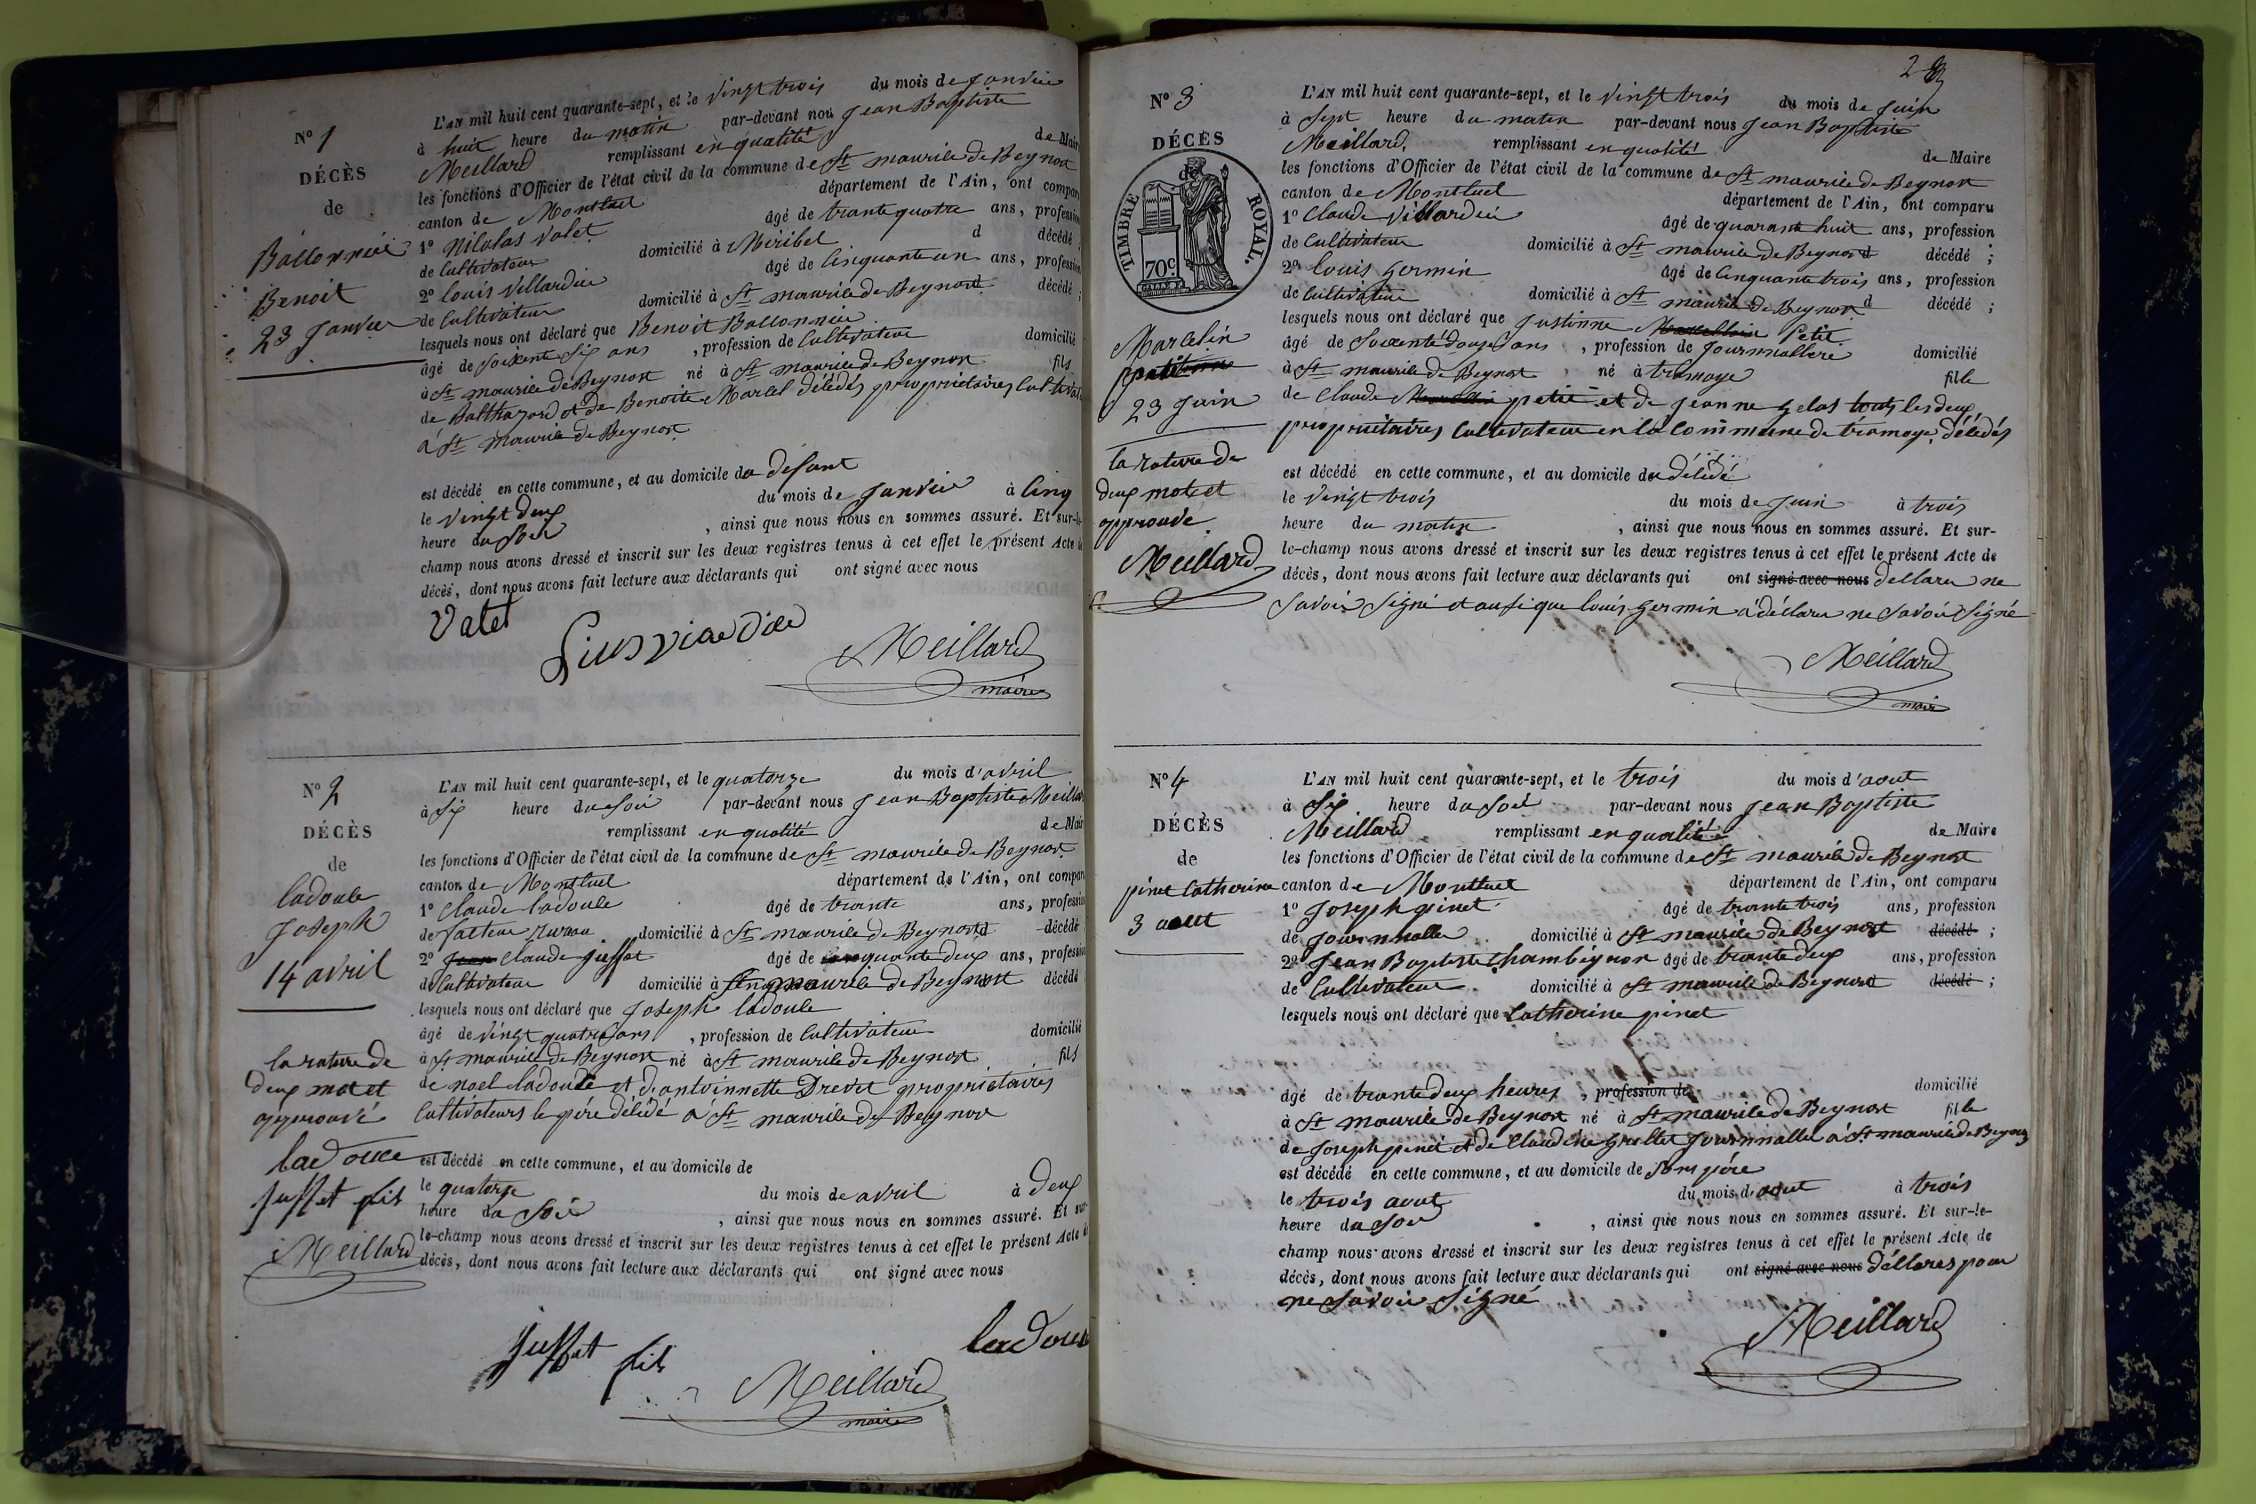 N° 1
DÉCÈS
de
Ballonnier
Benoit
23 Janvier
L'AN mil huit cent quarante-sept, et le vingt trois du mois de Janvier
à huit heure du matin par-devant nou Jean Baptiste
Meillard remplissant en qualité de Mair
les fonctions d'Officier de l'état civil de la commune de St maurice de Beynost
canton de Montluel département de l'Ain, ont compar
1° Nicolas Valet âgé de trante quatre ans, professi
de Cultivateur domicilié à Miribel d décédé
2° louis villardin âgé de Cinquante un ans, professi
de Cultivateur domicilié à St maurice de Beynost décédé ;
lesquels nous ont déclaré que Benoit Ballonnier
âgé de soixante six ans , profession de Cultivateur domicilié
à St maurice de Beynost né à St maurice de Beynost fils
de Balthazard et de Benoite Marcel décédés propriétaires Cultivat
à St maurice de Beynost
est décédé en cette commune, et au domicile du défunt
le vingt deux du mois de Janvier à Cinq
heure du Soir , ainsi que nous nous en sommes assuré. Et sur-l
champ nous avons dressé et inscrit sur les deux registres tenus à cet effet le présent Acte
décès, dont nous avons fait lecture aux déclarants qui ont signé avec nous
Valet
Meillard
maire
N° 2
DÉCÈS
de
ladouce
Joseph
14 avril
la rature de
deux mot et
approuvé
ladouce
Juffet fils
Meillard
L'AN mil huit cent quarante-sept, et le quatorze du mois d'avril
à Six heure du Soir par-devant nous Jean Baptiste Meillar
remplissant en qualité de Mair
les fonctions d'Officier de l'état civil de la commune de St maurice de Beynost
canton de Montluel département de l'Ain, ont compar
1° Claude ladouce âgé de trante ans, professi
de facteur Rurau domicilié à St maurice de Beynost d décédé
2° Jean Claude Juffet âgé de cinquante deux ans, profession
de Cultivateur domicilié à St maurice de Beynost décédé
lesquels nous ont déclaré que Joseph ladouce
âgé de vingt quatre ans , profession de Cultivateur domicilié
à St maurice de Beynost né à St maurice de Beynost fils
de noel ladouce et d'antoinnette Drevet propriétaires
Cultivateurs le père décédé à St maurice de Beynost
est décédé en cette commune, et au domicile de
le quatorze du mois de avril à deux
heure du Soir , ainsi que nous nous en sommes assuré. Et sur-
le-champ nous avons dressé et inscrit sur les deux registres tenus à cet effet le présent Acte d
décès, dont nous avons fait lecture aux déclarants qui ont signé avec nous
Juffet fils
ladouce
Meillard
maire
2
N° 3
DÉCÈS
de
TIMBRE ROYAL.
70c.
Marcelin
23 Juin
la rature de
deux mots et
approuvé
Meillard
L'AN mil huit cent quarante-sept, et le vingt trois du mois de Juin
à Sept heure du matin par-devant nous Jean Baptiste
Meillard remplissant en qualité de Maire
les fonctions d'Officier de l'état civil de la commune de St maurice de Beynost
canton de Montluel département de l'Ain, ont comparu
1° Claude villardin âgé de quarante huit ans, profession
de Cultivateur domicilié à St maurice de Beynost d décédé ;
2° louis Germin âgé de Cinquante trois ans, profession
de Cultivateur domicilié à St maurice de Beynost d décédé ;
lesquels nous ont déclaré que Justinne Marcellin Petit
âgé de Soixante douze ans , profession de Journnallere domicilié
à St maurice de Beynost né à tramoye fille
de Claude Marcellin petit et de Jeanne Gelas tous les deux
propriétaires Cultivateur en la Commune de tramoye, décédés
est décédé en cette commune, et au domicile du décédé
le vingt trois du mois de Juin à trois
heure du matin , ainsi que nous nous en sommes assuré. Et sur-
le-champ nous avons dressé et inscrit sur les deux registres tenus à cet effet le présent Acte de
décès, dont nous avons fait lecture aux déclarants qui ont signé avec nous déclaré ne
Savoir Signé et ausi que louis Germin à déclaré ne Savoir Signé
Meillard
maire
N° 4
DÉCÈS
de
pinet Catherine
3 aout
L'AN mil huit cent quarante-sept, et le trois du mois d'aout
à Six heure du Soir par-devant nous Jean Baptiste
Meillard remplissant en qualité de Maire
les fonctions d'Officier de l'état civil de la commune de St maurice de Beynost
canton de Montluel département de l'Ain, ont comparu
1° Joseph pinet âgé de trante trois ans, profession
de Journnallier domicilié à St maurice de Beynost décédé ;
2° Jean Baptiste Chambeynon âgé de trante deux ans, profession
de Cultivateur domicilié à St maurice de Beynost décédé ;
lesquels nous ont déclaré que Catherine pinet
âgé de trante deux heures , profession de domicilié
à St maurice de Beynost né à St maurice de Beynost fille
de Joseph pinet et de Claudine Grollet Journnallier à St maurice de Beynost
est décédé en cette commune, et au domicile de Son père
le trois aout du mois d'aout à trois
heure du Soir , ainsi que nous nous en sommes assuré. Et sur-le-
champ nous avons dressé et inscrit sur les deux registres tenus à cet effet le présent Acte de
décès, dont nous avons fait lecture aux déclarants qui ont signé avec nous déclares pour
ne Savoir Signé
Meillard